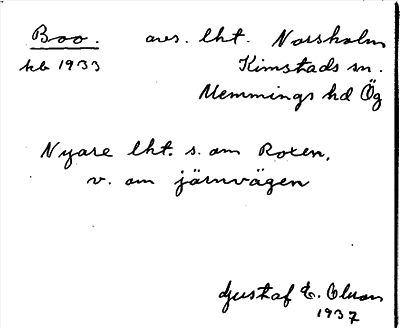 Boo. avs. lht. Norsholm
kb 1933 Kimstads sn.
Memmings hd Ög
Nyare lht. s. om Roxen,
v. om järnvägen
Gustaf E. Olson
1937